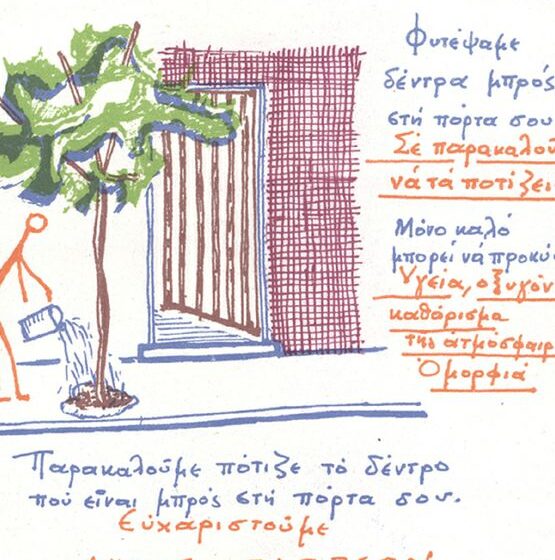 Φυτέψαμε
δέντρα μπρός
στή πόρτα σου
Σέ παρακαλοῦ
νά τά ποτίζει
Μόνο καλό
μπορεί νά προκύ
Υγεία, οξυγόν
καθάρισμα
της ἀτμόσφαιρ
Ὀμορφιά
Παρακαλοῦμε πότιζε τό δέντρο
πού εἶναι μπρός στή πόρτα σου.
Εὐχαριστοῦμε